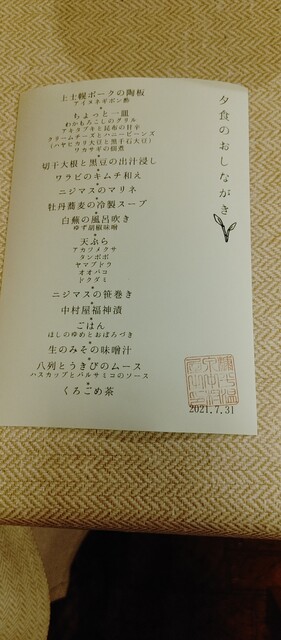 夕食のおしながき
上士幌ポークの陶板
アイヌネギポン酢
ちょっと一皿
わかもろこしのグリル
アキタブキと昆布の甘辛
クリームチーズとハニービーンズ
(ハヤヒカリ大豆と黒千石大豆)
ワカサギの佃煮
切干大根と黒豆の出汁浸し
ワラビのキムチ和え
ニジマスのマリネ
牡丹蕎麦の冷製スープ
白蕪の風呂吹き
ゆず胡椒味噌
天ぷら
アカツメクサ
タンポポ
ヤマブドウ
オオバコ
ドクダミ
ニジマスの笹巻き
中村屋福神漬
ごはん
ほしのゆめとおぼろづき
生のみその味噌汁
八列とうきびのムース
ハスカップとバルサミコのソース
くろごめ茶
2021.7.31